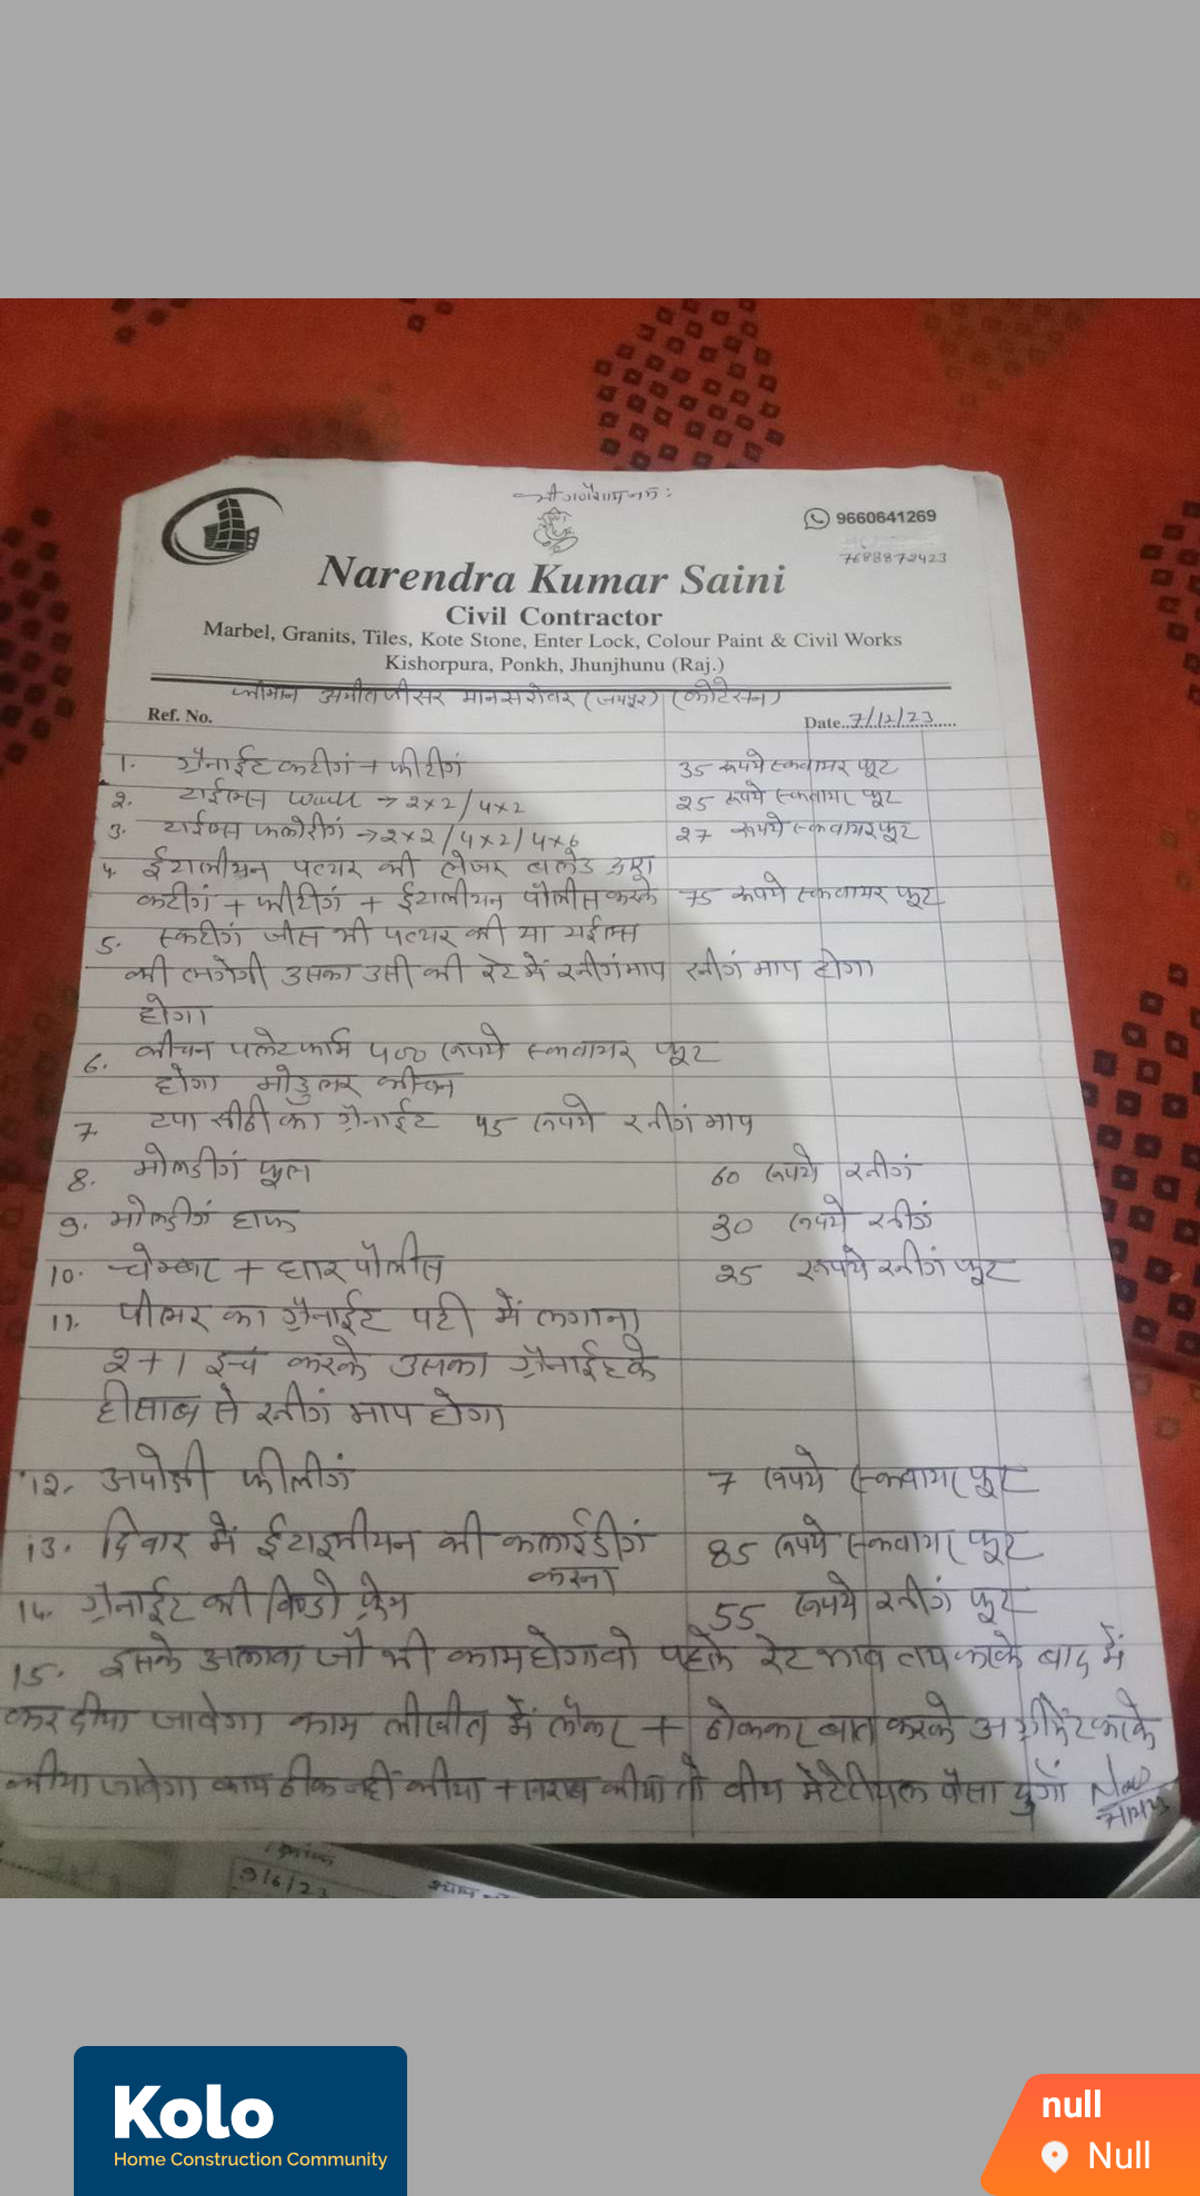 श्री गणेशाय नमः
9660641269
7688872423
Narendra Kumar Saini
Civil Contractor
Marbel, Granits, Tiles, Kote Stone, Enter Lock, Colour Paint & Civil Works
Kishorpura, Ponkh, Jhunjhunu (Raj.)
श्रीमान अमीतजीसर मानसरोवर (जयपुर) (कोटेसन)
Ref. No.
Date..7/12/23
1. ग्रैनाईट कटीगं + फीटीगं 35 रूपये स्कवायर फूट
2. टाईल्स wall → 2×2/4×2 25 रूपये स्कवायर फूट
3. टाईल्स फलोरीगं → 2×2/4×2/4×6 27 रूपये स्कवायर फूट
4. ईटालीयन पत्थर की लेजर बलेड द्वारा
कटीगं + फीटीगं + ईटालीयन पॉलीस करके 75 रूपये स्कवायर फूट
5. स्कटीगं जीस भी पत्थर की या टाईल्स
की लगेगी उसका उसी की रेट में रनीगं माप रनीगं माप होगा
होगा
6. कीचन पलेटफार्म 500 रूपये स्कवायर फूट
होगा मोडुलर कीचन
7. टपा सीढी का ग्रैनाईट 45 रूपये रनीगं माप
8. मोलडीगं फूल 60 रूपये रनीगं
9. मोलडीगं हाफ 30 रूपये रनीगं
10. चेम्बर + धार पोलीस 25 रूपये रनीगं फूट
11. पीलर का ग्रैनाईट पटी में लगाना
2+1 इन्च करके उसका ग्रैनाईट के
हीसाब से रनीगं माप होगा
12. अपोक्सी फीलीगं 7 रूपये स्कवायर फूट
13. दिवार में ईटालीयन की कलाईडीगं 85 रूपये स्कवायर फूट
करना
14. ग्रैनाईट की विण्डो फ्रेम 55 रूपये रनीगं फूट
15. इसके अलावा जो भी काम होगा वो पहले रेट भाव तय करके बाद में
कर दीया जावेगा काम लीखीत में लेकर + ठोककर बात करके अग्रीमेंट करके
कीया जावेगा काम ठीक नहीं कीया + खराब कीया तो वीथ मेटेरीयल पैसा दुगाँ
9/6/23
Kolo
Home Construction Community
null
Null